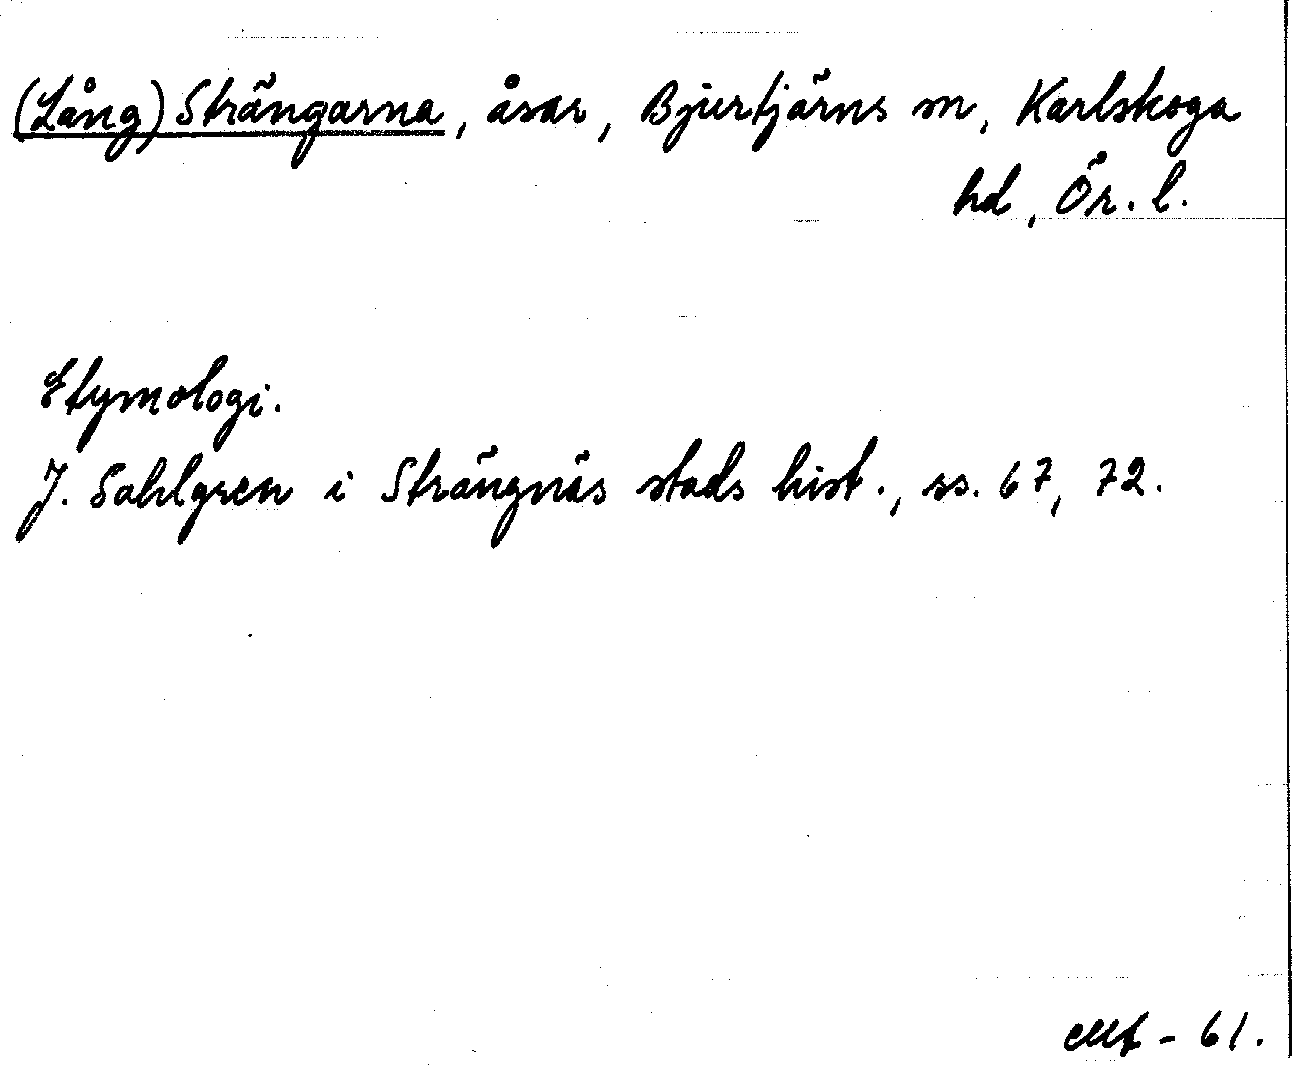 (Lång)Strängarna, åsar, Bjurtjärns sn, Karlskoga
hd, Ör. l.
Etymologi.
J. Sahlgren i Strängnäs stads hist., ss. 67, 72.
- 61.